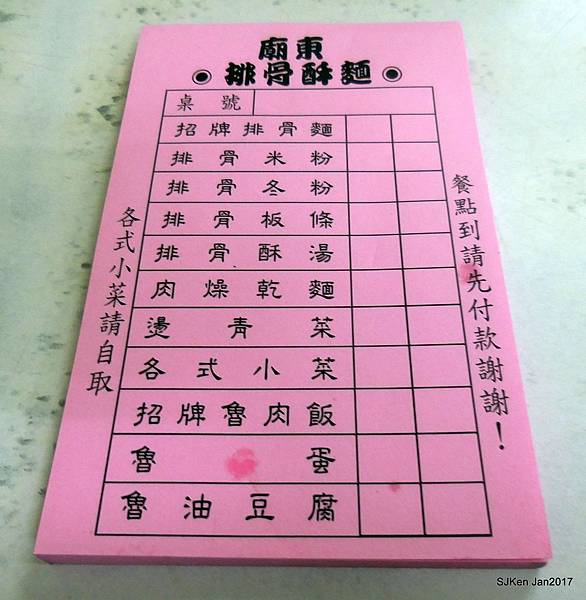 廟東
排骨酥麵
桌號
招牌排骨麵
排骨米粉
排骨冬粉
排骨板條
排骨酥湯
肉燥乾麵
燙青菜
各式小菜
招牌魯肉飯
魯蛋
魯油豆腐
各式小菜請自取
餐點到請先付款謝謝！
SJKen Jan2017